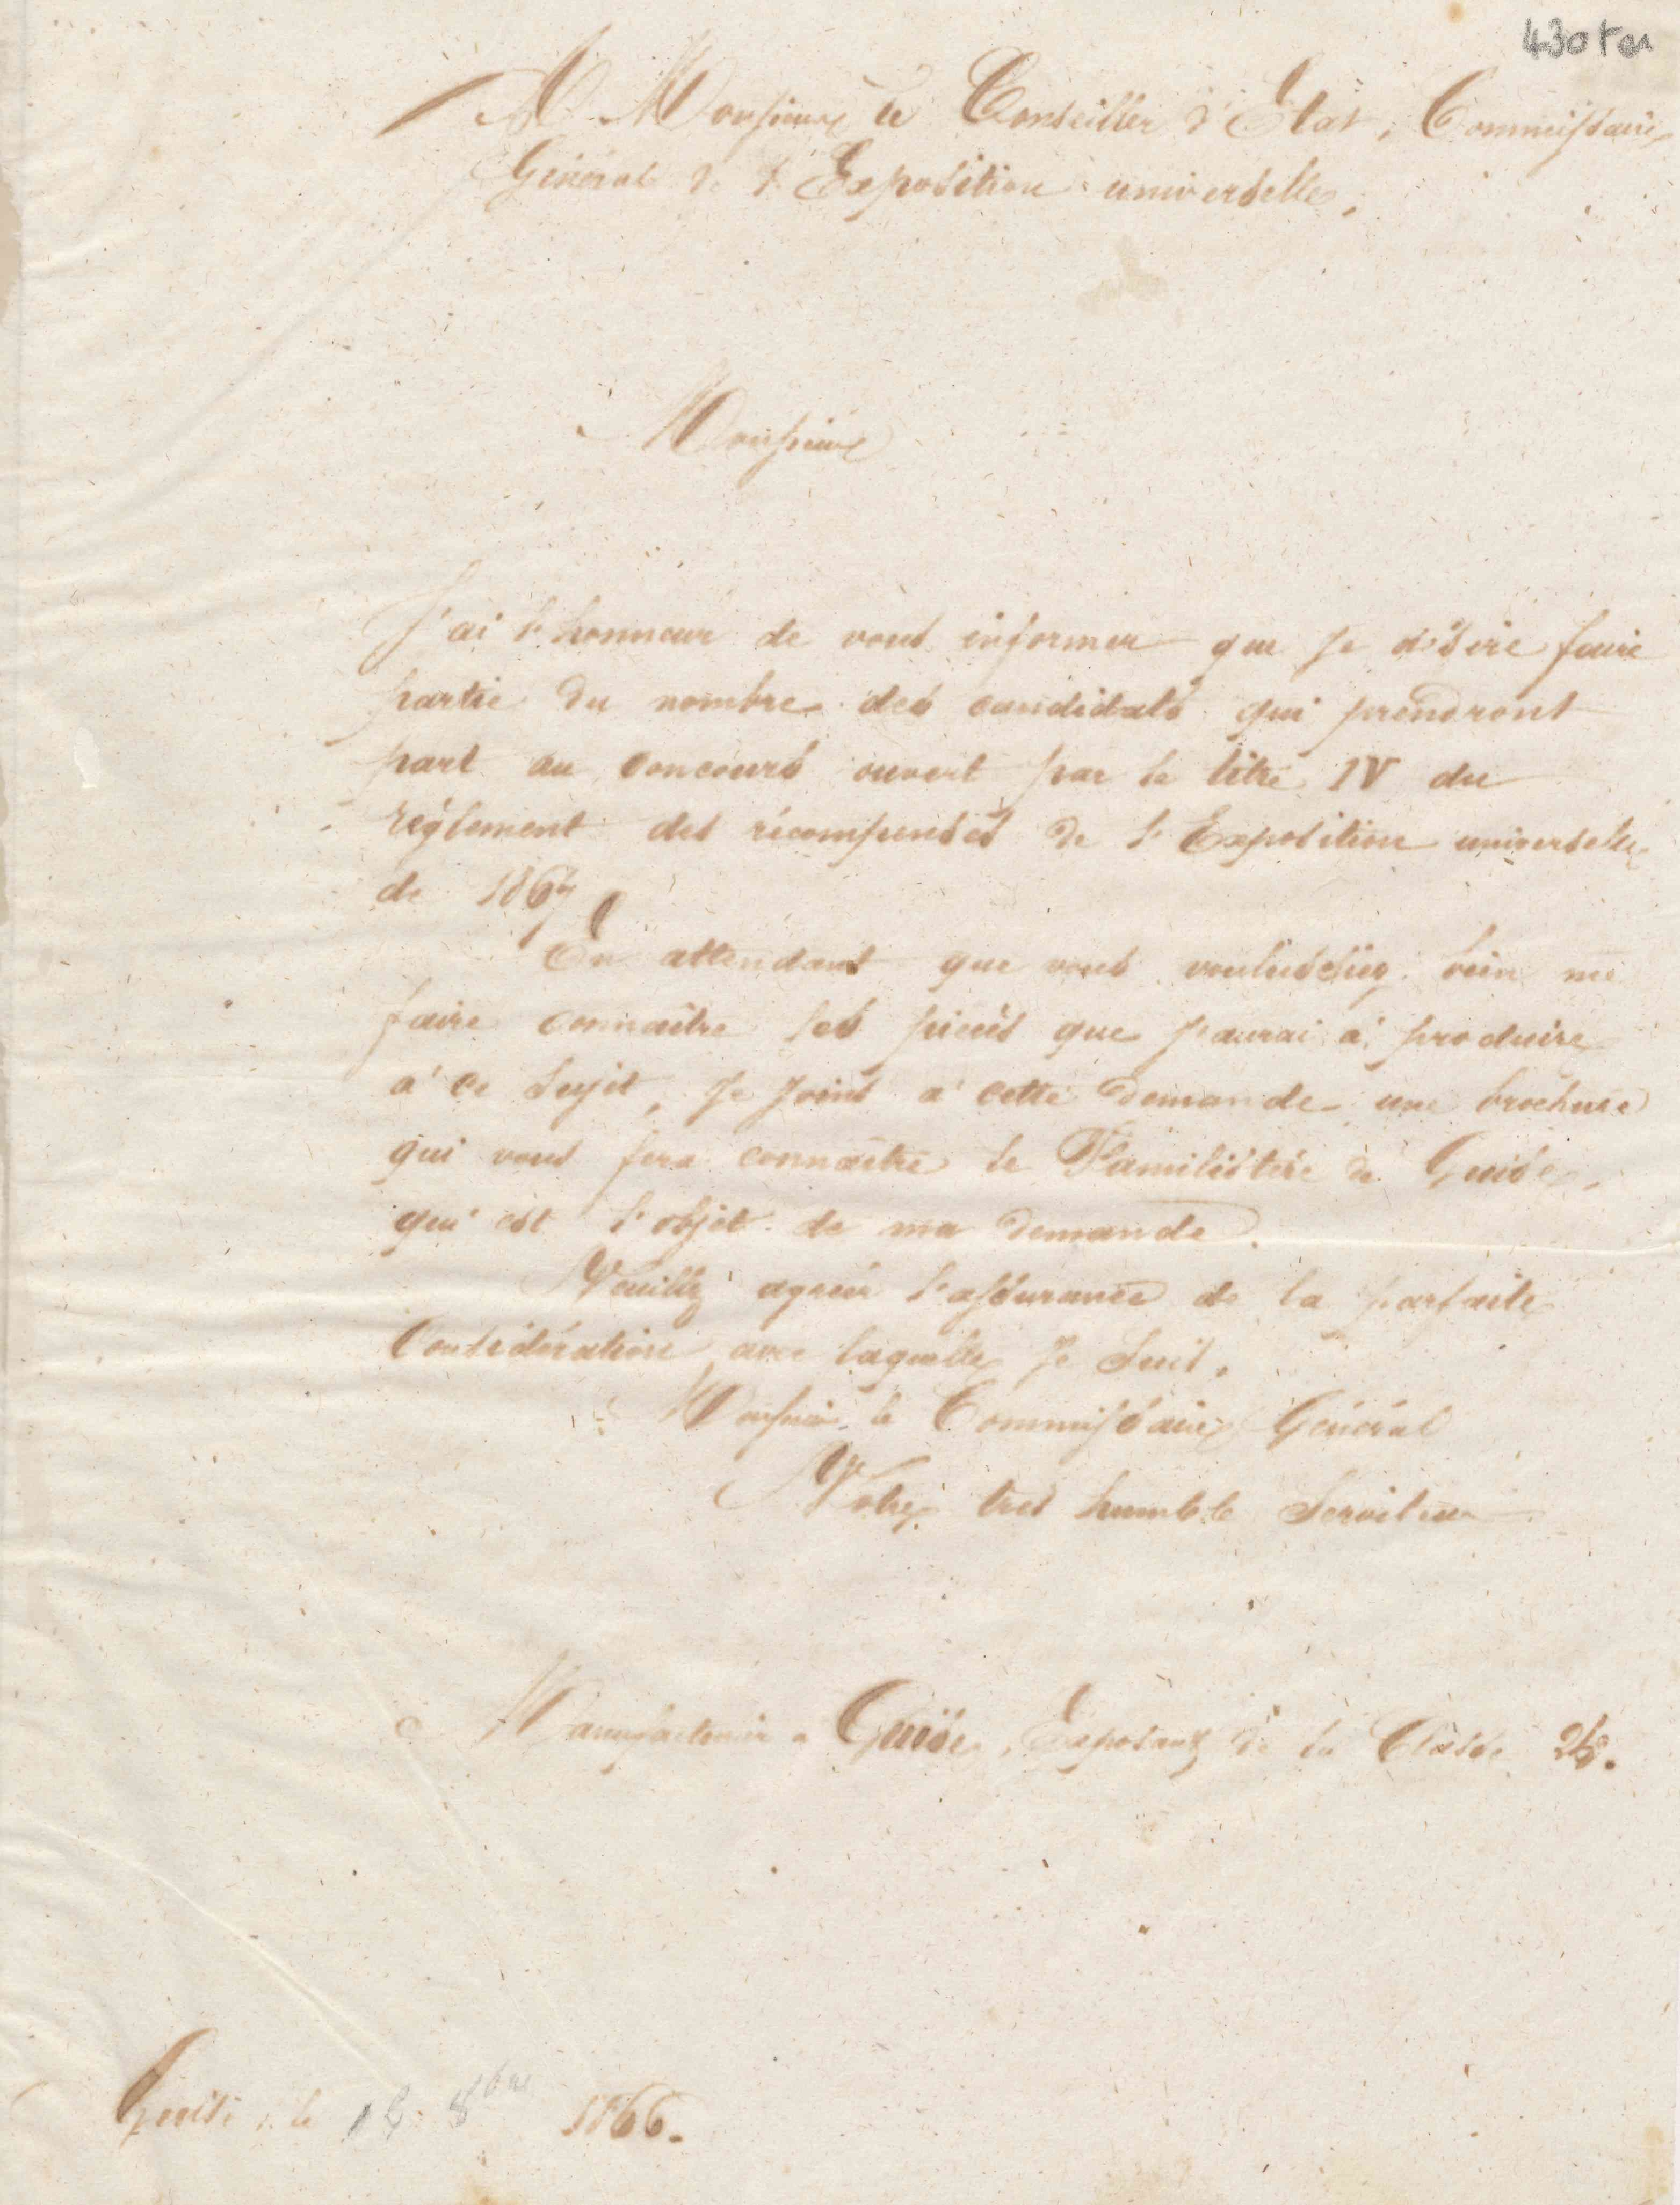 430 ter
A Monsieur le Conseiller d'Etat, Commissaire
Général de l'Exposition universelle,
Monsieur
J'ai l'honneur de vous informer que je désire faire
partie du nombre des candidats qui prendront
part au concours ouvert par le titre IV du
règlement des récompenses de l'Exposition universelle
de 1867
En attendant que vous voulussiez bien me
faire connaître les pièces que j'aurai à produire
à ce sujet, je joins à cette demande une brochure
qui vous fera connaître le Familistère de Guise,
qui est l'objet de ma demande.
Veuillez agréer l'assurance de la parfaite
Considération avec laquelle je suis,
Monsieur le Commissaire Général
Votre très humble Serviteur
Manufacturier à Guise, Exposant de la Classe
Guise, le 18 8bre 1866.